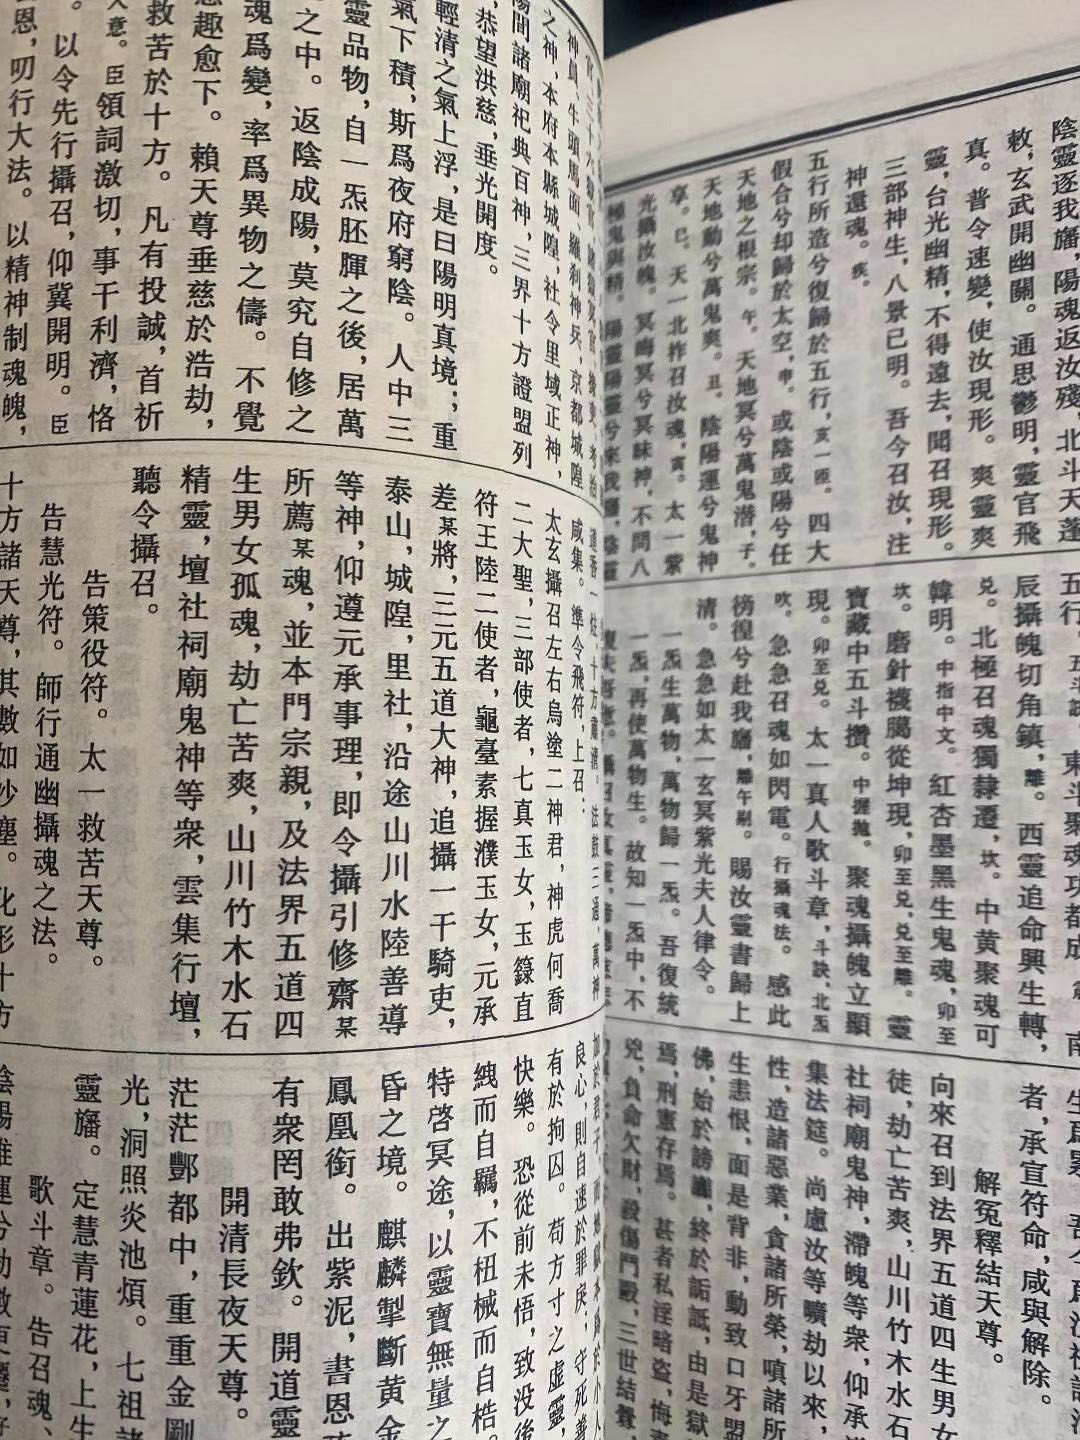 陰靈逐我旛，陽魂返汝殘，北斗天蓬
敕，玄武開幽關。通思鬱明，靈官飛
真。普令速變，使汝現形。爽靈爽
靈，台光幽精，不得遠去，聞召現形。
三部神生，八景已明。吾今召汝，注
神還魂。疾。
五行所造兮復歸於五行，亥一匝。四大
假合兮却歸於太空，申。或陰或陽兮任
天地之根宗。午。天地冥兮萬鬼潛，子。
天地動兮萬鬼爽。丑。陰陽運兮鬼神
享。巳。天一北柞召汝魂，寅。太一紫
光攝汝魄。冥晦冥兮冥昧神，不問八
極鬼與精。陽靈陽靈兮來我旛，陰靈
五行。東斗聚魂功都成，南
辰攝魄切角鎮，離。西靈追命興生轉，
兌。北極召魂獨隸遷，坎。中黄聚魂可
韓明。中指中文。紅杏墨黑生鬼魂，卯至
坎。磨針襪臈從坤現，卯至兌，兌至離。靈
寶藏中五斗攢。中握拋。聚魂攝魄立顯
現。卯至兌。太一真人歌斗章，斗訣，北炁
吹。急急召魂如閃電。行攝魂法。感此
徬徨兮赴我旛，離午剔。賜汝靈書歸上
清。急急如太一玄冥紫光夫人律令。
一炁生萬物，萬物歸一炁。吾復統
一炁，再使萬物生。故知一炁中，不
者，承宣符命，咸與解除。
解冤釋結天尊。
向來召到法界五道四生男女
徒，劫亡苦爽，山川竹木水石
社祠廟鬼神，滯魄等衆，仰承
集法筵。尚慮汝等曠劫以來，
性，造諸惡業，貪諸所榮，嗔諸所
生恚恨，面是背非，動致口牙盟
佛，始於謗讟，終於詬詆，由是獄
焉，刑憲存焉。甚者私淫暗盜，悔
兇，負命欠財，殺傷鬥毆，三世結讐，
神員，牛頭馬面、羅刹神兵，京都城隍
之神，本府本縣城隍，社令里域正神，
陽間諸廟祀典百神，三界十方證盟列
恭望洪慈，垂光開度。
輕清之氣上浮，是曰陽明真境；重
氣下積，斯爲夜府窮陰。人中三
靈品物，自一炁胚腪之後，居萬
之中。返陰成陽，莫究自修之
魂爲變，率爲異物之儔。不覺
趣愈下。賴天尊垂慈於浩劫，
救苦於十方。凡有投誠，首祈
意。臣領詞激切，事干利濟，恪
。以令先行攝召，仰冀開明。臣
恩，叨行大法。以精神制魂魄，
咸集。準令飛符，上召：
太玄攝召左右烏塗二神君，神虎何喬
二大聖，三部使者，七真玉女，玉籙直
符王陸二使者，龜臺素握濮玉女，元承
差某將，三元五道大神，追攝一干騎吏，
泰山，城隍，里社，沿途山川水陸善導
等神，仰遵元承事理，即令攝引修齋某
所薦某魂，並本門宗親，及法界五道四
生男女孤魂，劫亡苦爽，山川竹木水石
精靈，壇社祠廟鬼神等衆，雲集行壇，
聽令攝召。
告策役符。太一救苦天尊。
告慧光符。師行通幽攝魂之法。
十方諸天尊，其數如沙塵。化形十方
良心，則自速於罪戾，守死善
有於拘囚。苟方寸之虛靈，
快樂。恐從前未悟，致没後
絏而自羈，不杻械而自梏。
特啓冥途，以靈寶無量之
昏之境。麒麟掣斷黄金
鳳凰銜。出紫泥，書恩
有衆罔敢弗欽。開道靈
開清長夜天尊。
茫茫酆都中，重重金剛
光，洞照炎池煩。七祖諸
靈旛。定慧青蓮花，上生
歌斗章。告召魂、